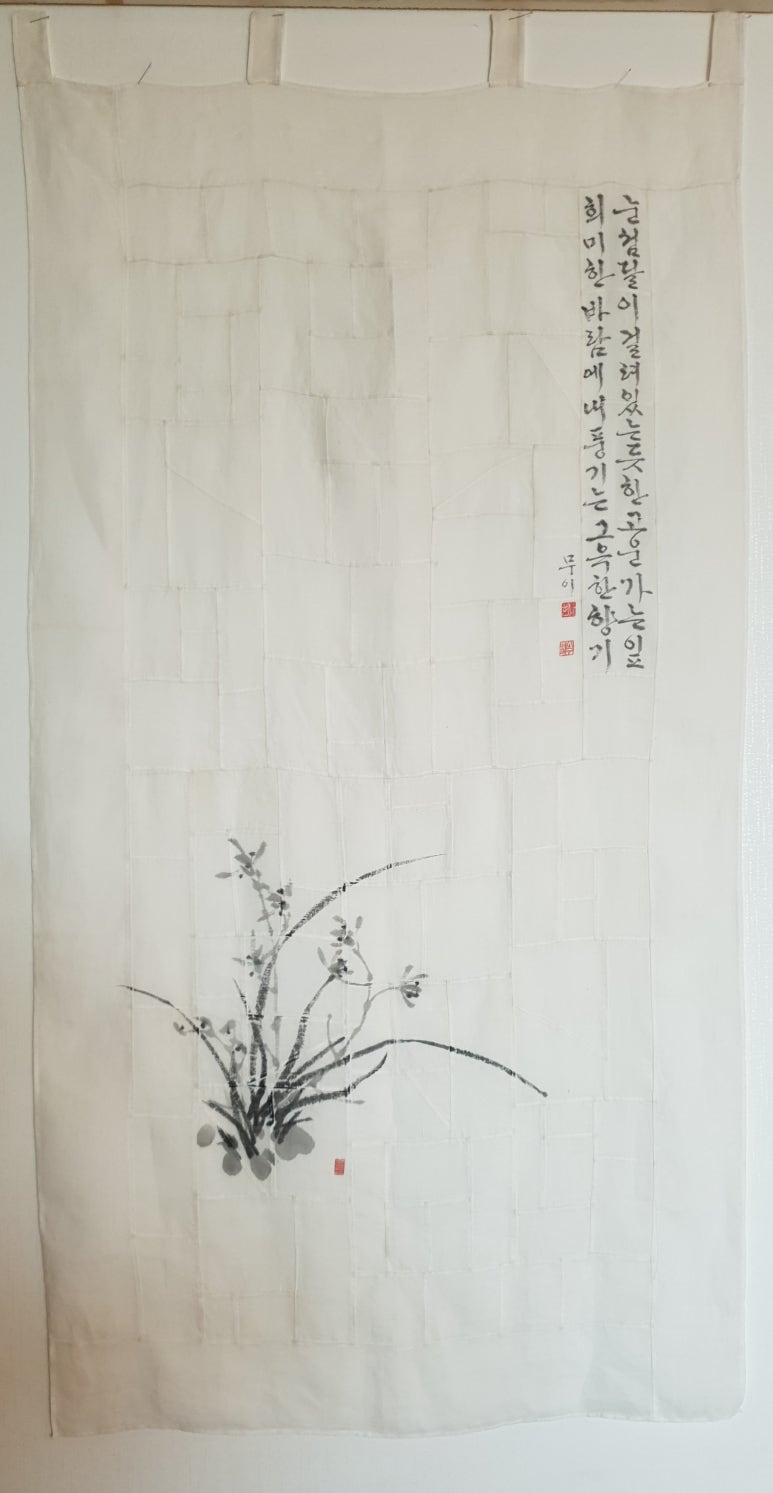 눈썹달이 걸려있는듯한 고운 가는잎
희미한 바람에 내풍기는 그윽한 향기
무이